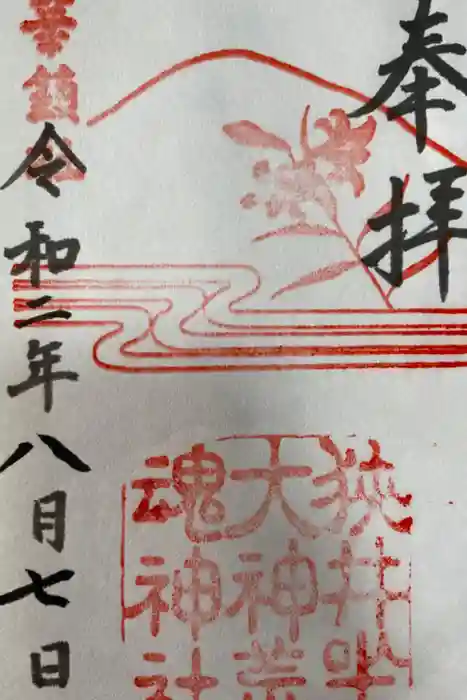 奉拝
狹井坐
大神荒
魂神社
華鎮
令和二年八月七日